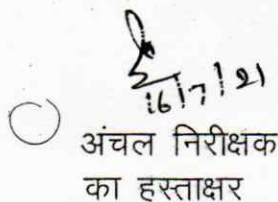 16/7/21
अंचल निरीक्षक
का हस्ताक्षर